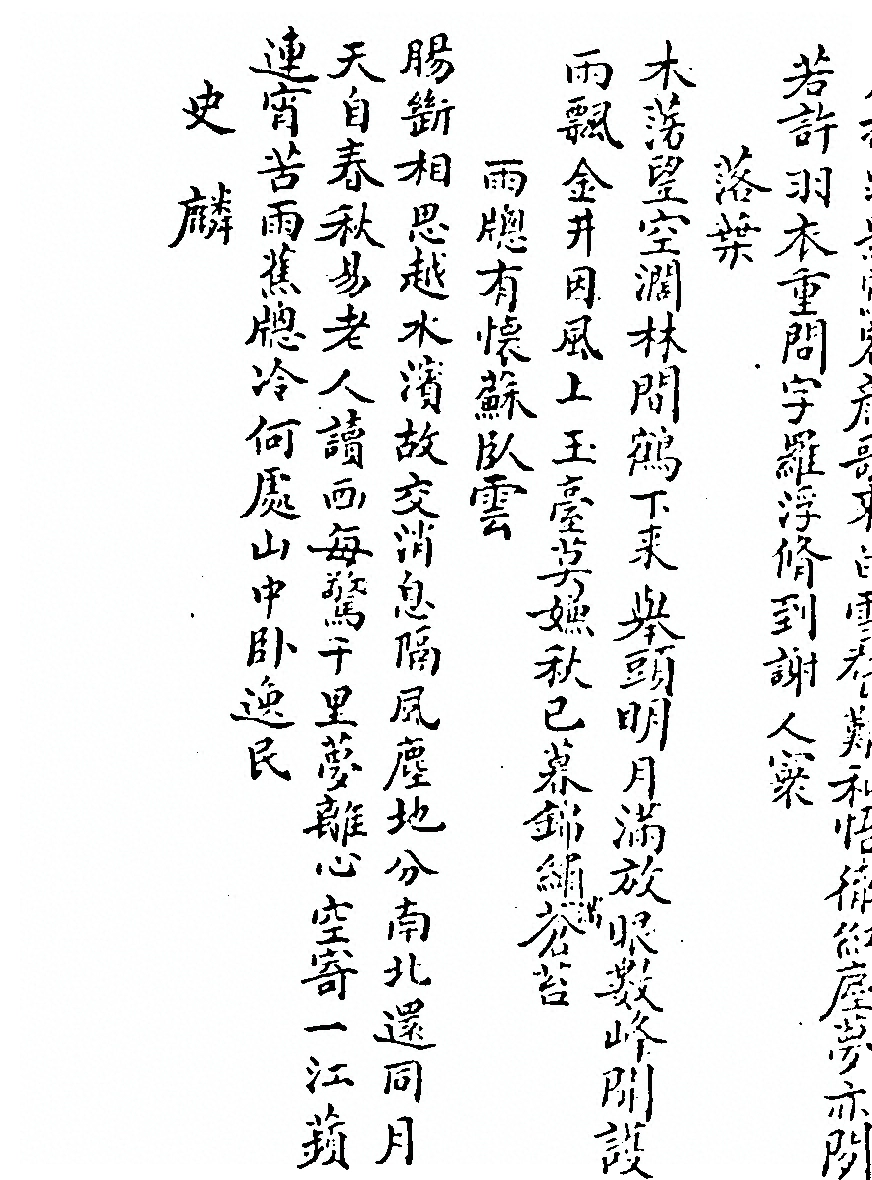 白雲卷難和悟徹紅塵夢亦閒
若許羽衣重問字羅浮脩到謝人寰
落葉
木落望空濶林間鶴下来舉頭明月滿放眼數峰開護
雨飄金井因風上玉臺莫嫌秋已暮錦繡蒼苔
雨牕有懷蘇臥雲
腸斷相思越水濱故交消息隔風塵地分南北還同月
天自春秋易老人讀画每驚千里夢離心空寄一江蘋
連宵苦雨蕉牕冷何處山中卧逸民
史麟